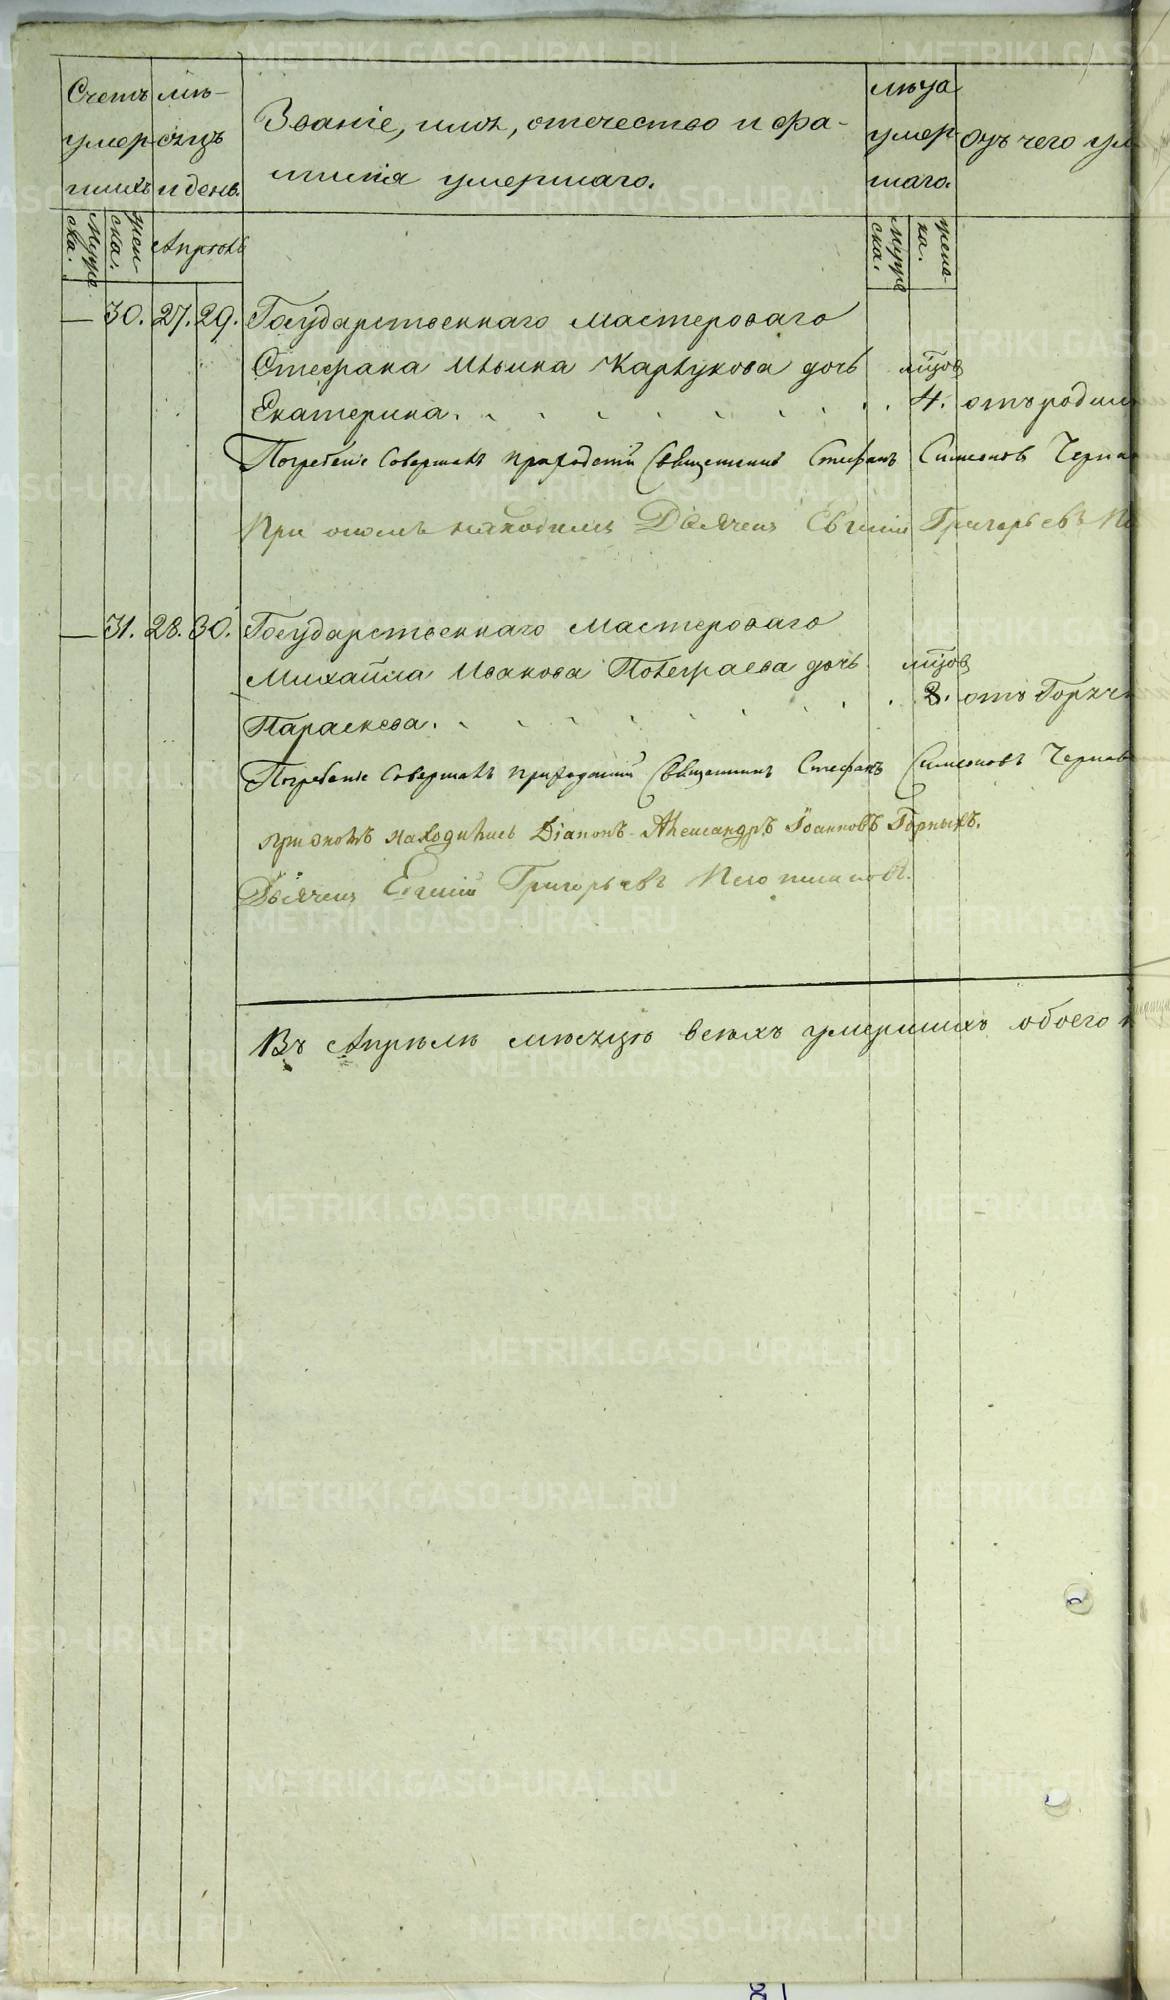 Счетъ умер шихъ
мѣ- сяцъ и день.
Званіе, имя, отечество и фа-
милія умершаго.
лѣта умер шаго.
отъ чего ум
Муже ска.
жен ска.
Апрѣль
Муже ска.
женс ка.
— 30. 27. 29. Государственнаго мастероваго
Стефана Ильина дочь мѣцов
Екатерина. 4. отъ родим
Погребеніе совершалъ приходскій Священникъ Стефанъ Симеоновъ Черна
При ономъ находились Дьячекъ Евгеній Григорьевъ
— 31. 28. 30. Государственнаго мастероваго
Михайла Иванова дочь мѣцов
Параскева. 8. отъ Горяч
Погребеніе совершалъ приходскій Священникъ Стефанъ Симеоновъ Чернав
при ономъ находились Діаконъ Александръ Іоанновъ Горныхъ.
Дьячекъ Евгеній Григорьевъ
Въ Апрѣлѣ мѣсяцѣ всѣхъ умершихъ обоего п
METRIKI.GASO-URAL.RU